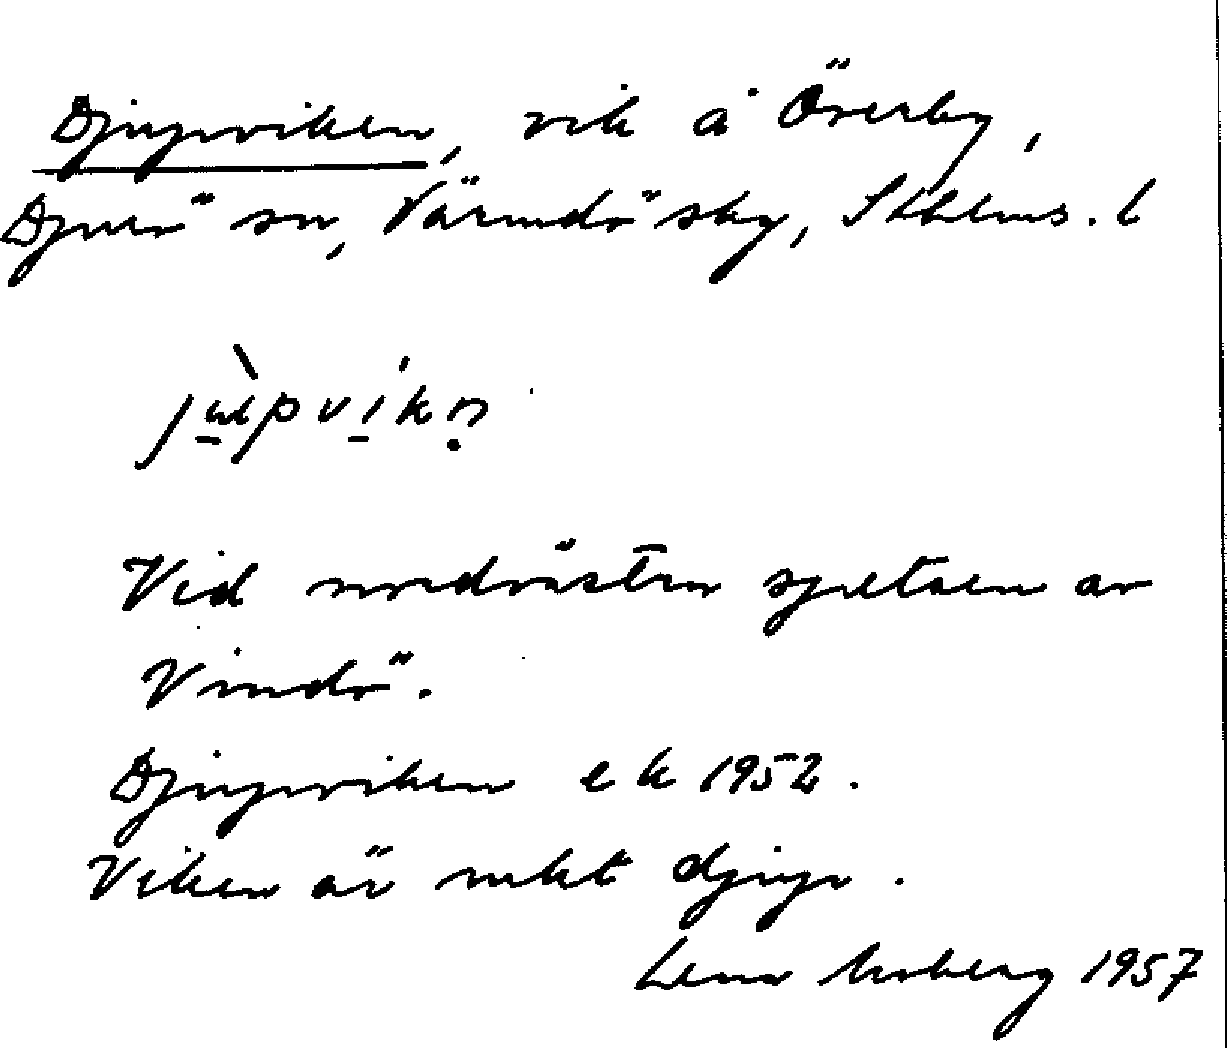 Djupviken, vik å Överby,
Djurö sn, Värmdö skg, Sthlms. l
jùpvíkn̥
Vid nordvästra spetsen av
Vindö.
Djupviken ek 1952.
Viken är rukt djup.
Lena Moberg 1957